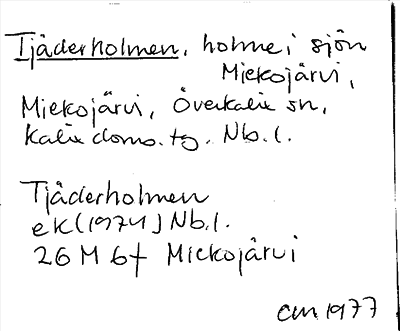 Tjäderholmen, holme i sjön
Miekojärvi,
Miekojärvi, Överkalix sn,
Kalix doms. tg. Nb. l.
Tjäderholmen
ek (1974) Nb. l.
26 M 6f Miekojärvi
CM 1977